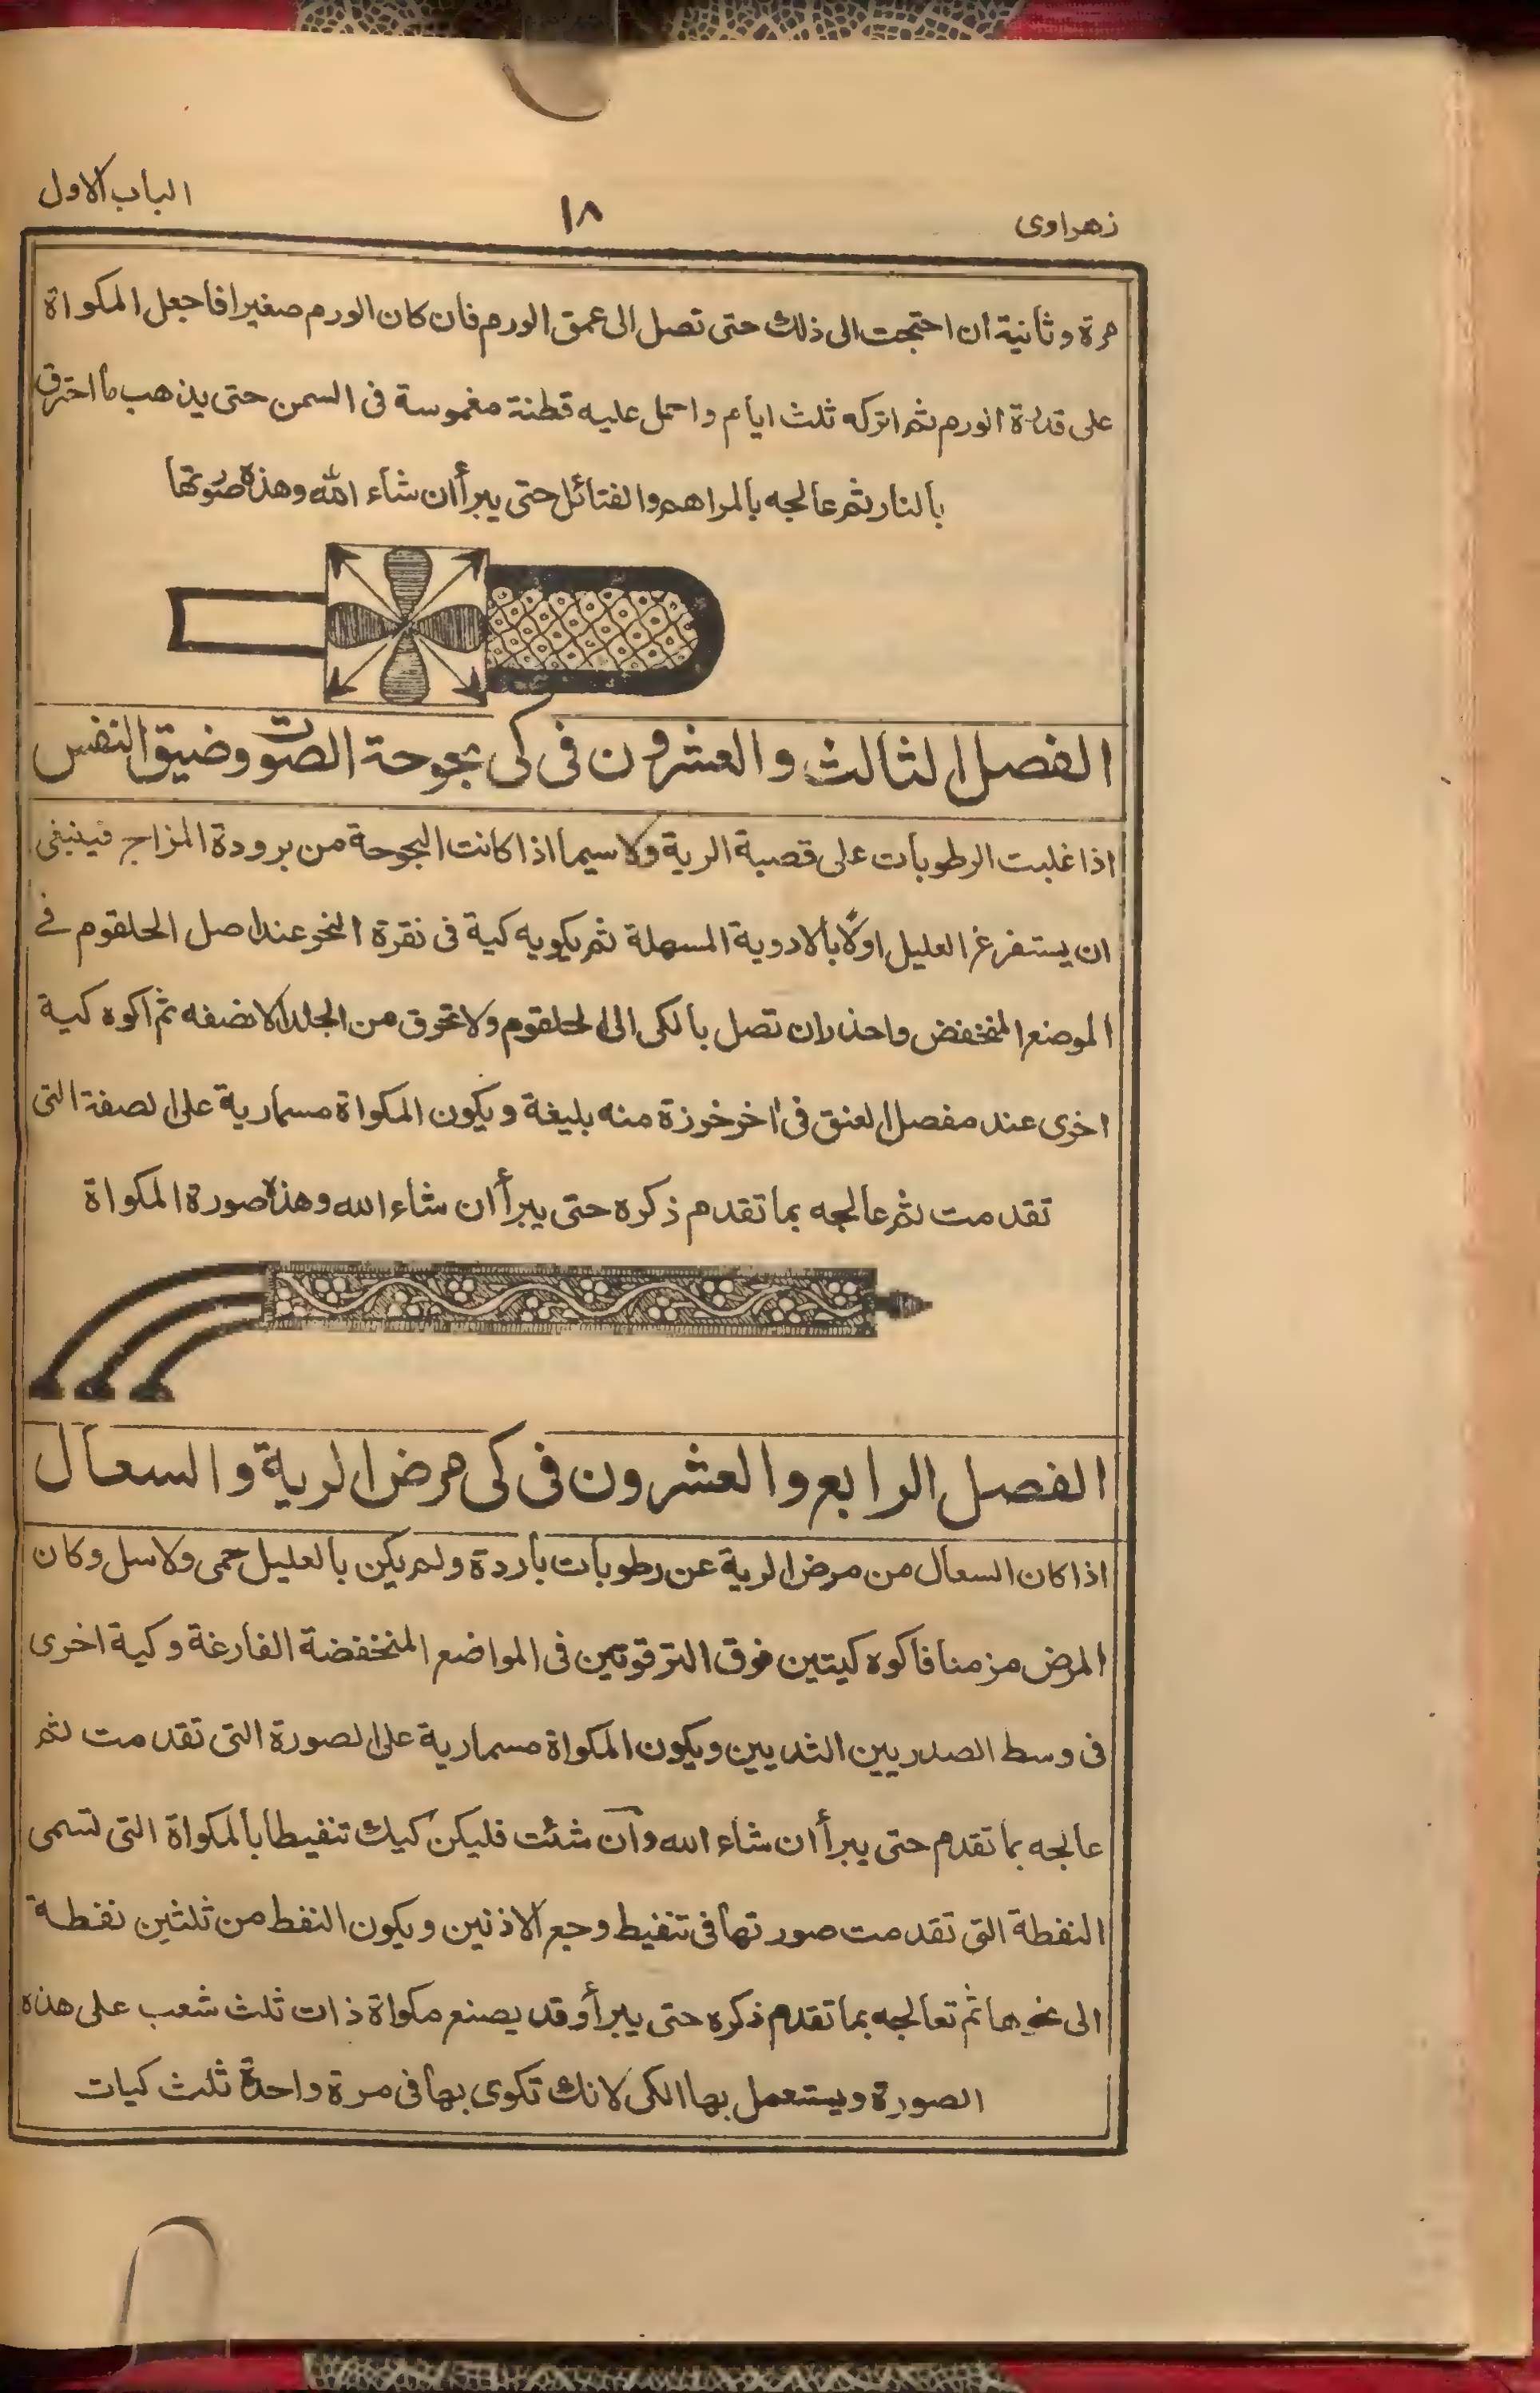 زهراوى
١٨
الباب الاول
مرة وثانية ان احتجت الى ذلك حتى تصل الى عمق الورم فان كان الورم صغيرا فاجعل المكواة
على قدرة الورم ثم اتركه ثلث ايام واحمل عليه قطنة مغموسة فى السمن حتى يذهب ما احترق
بالنار ثم عالجه بالمراهم والفتائل حتى يبرأ ان شاء الله وهذه صورتها
الفصل الثالث والعشرون فى كى بحوحة الصوت وضيق النفس
اذا غلبت الرطوبات على قصبة الرية ولا سيما اذا كانت البحوحة من برودة المزاج فينبغى
ان يستفرغ العليل اولًا بالادوية المسهلة ثم يكويه كية فى نقرة النحر عند اصل الحلقوم فى
الموضع المنخفض واحذر ان تصل بالكى الى الحلقوم ولا تحرق من الجلد الا نصفه ثم اكوه كية
اخرى عند مفصل العنق فى اخر خرزة منه بليغة ويكون المكواة مسمارية على الصفة التى
تقدمت ثم عالجه بما تقدم ذكره حتى يبرأ ان شاء الله وهذه صورة المكواة
الفصل الرابع والعشرون فى كى مرض الرية والسعال
اذا كان السعال من مرض الرية عن رطوبات باردة ولم يكن بالعليل حمى ولا سل وكان
المرض مزمنا فاكوه كيتين فوق الترقوتين فى المواضع المنخفضة الفارغة وكية اخرى
فى وسط الصدر بين الثديين ويكون المكواة مسمارية على الصورة التى تقدمت ثم
عالجه بما تقدم حتى يبرأ ان شاء الله وان شئت فليكن كيك تنفيطا بالمكواة التى تسمى
النفطة التى تقدمت صورتها فى تنفيط وجع الاذنين ويكون النفط من ثلثين نفطة
الى نحوها ثم تعالجه بما تقدم ذكره حتى يبرأ وقد يصنع مكواة ذات ثلث شعب على هذه
الصورة ويستعمل بها الكى لانك تكوى بها فى مرة واحدة ثلث كيات